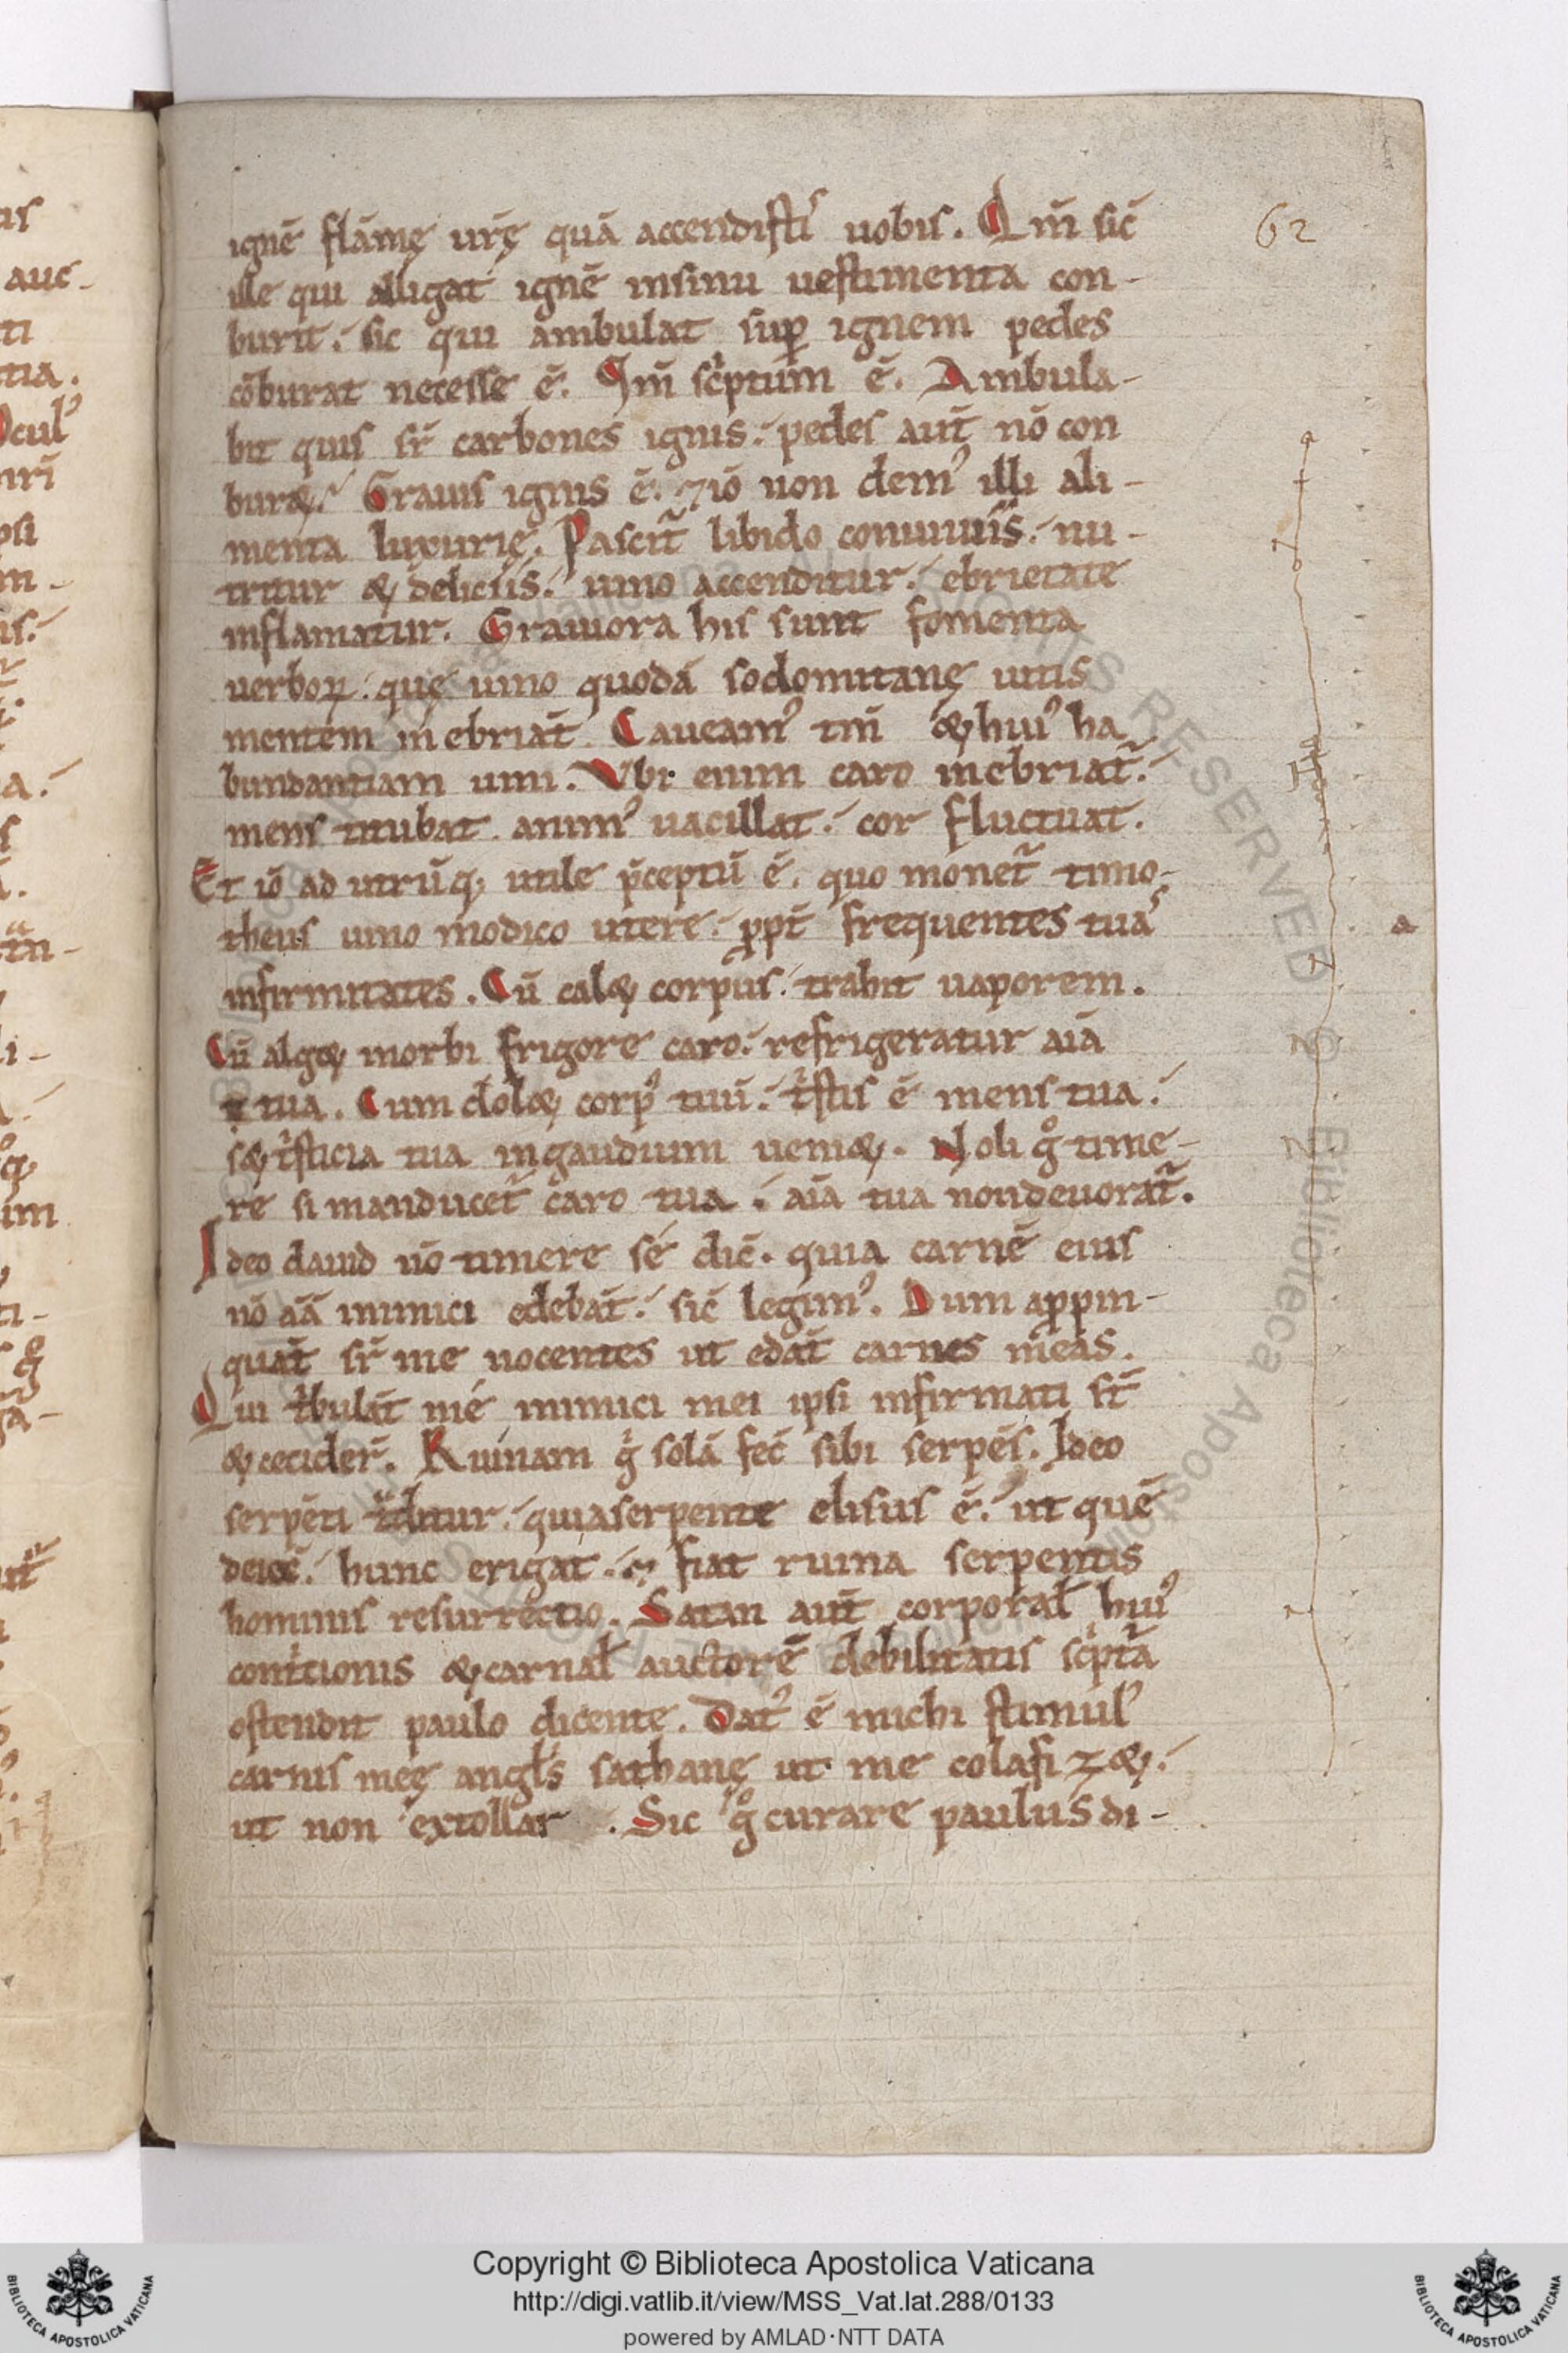 ignē flāmę urę̄ quā accendisti uobis. Qm̄ sic̄
ille qui alligat ignē insinu uestimenta con-
burit. sic qui ambulat sup̱ ignem pedes
cōburat necesse ē. Qm̄ scͥptum ē. Ambula-
bit quis sr̄ carbones ignis. pedes aut̄ nō con
bur&. Grauis ignis ē. ⁊iō non dem᾽ illi ali-
menta luxurię. Pascit᷑ libido conuiuiis. nu-
tritur & deliciis. uino accenditur. ebrietate
inflamatur. Grauiora his sunt fomenta
uerboꝝ. quę uino quodā sodomitanę uitis
mentem inebriāt. Caueam᾽ tm̄ & hui᾽ ha
bundantiam uini. Vbi enim caro inebriat᷑.
mens titubat. anim᾽ uacillat. cor fluctuat.
Et iō ad utrūq; utile p̄ceptū ē. quo monet᷑ timo-
theus uino modico utere. ꝓpt̄ frequentes tuas
infirmitates. Cū cal& corpus. trahit uaporem.
Cū alg& morbi frigore caro. refrigeratur aīā
tua. Cum dol& corp᾽ tuū. tͥstis ē mens tua.
s& tͥsticia tua ingaudium ueni&. Noli gͦ time-
re si manducet᷑ caro tua. aīā tua nondeuorat᷑.
Ideo dauid nō timere sé dic̄. quia carnē eius
nō aīā inimici edebāt. sic̄ legim᾽. Dum aꝓpin-
quāt sr̄ me nocentes ut edāt carnes meas.
Qui tͥbulāt mé inimici mei ipsi infirmati st̄
& cecider̄. Ruinam gͥ solā fec̄ sibi serpēs. Ideo
serpēti tͣditur. quiaserpente elisus ē. ut quē
deiec̄. hunc erigat. ⁊ fiat ruina serpentis
hominis resurrectio. Satan aut̄ corporal̄ hui᾽
contͥtionis & carnal̄ auctorē debilitatis scͥptᷓa
ostendit paulo dicente. Dat᾽ ē michi stimul᾽
carnis meę angl̄s sathanę ut me colafiz&.
ut non extollar. Sic gͦ curare paulus di-
62
a
Copyright © Biblioteca Apostolica Vaticana
http://digi.vatlib.it/view/MSS_Vat.lat.288/0133
powered by AMLAD·NTT DATA
BIBLIOTECA APOSTOLICA VATICANA
BIBLIOTECA APOSTOLICA VATICANA